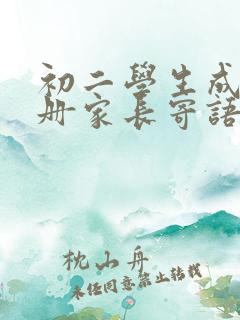 初二學生成
册家長寄語
枕山舟
未經同意禁止轉載